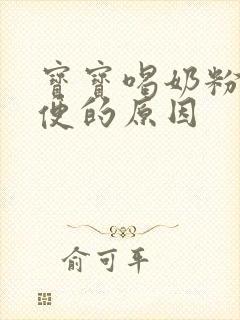 寶寶喝奶粉
便的原因
俞可平